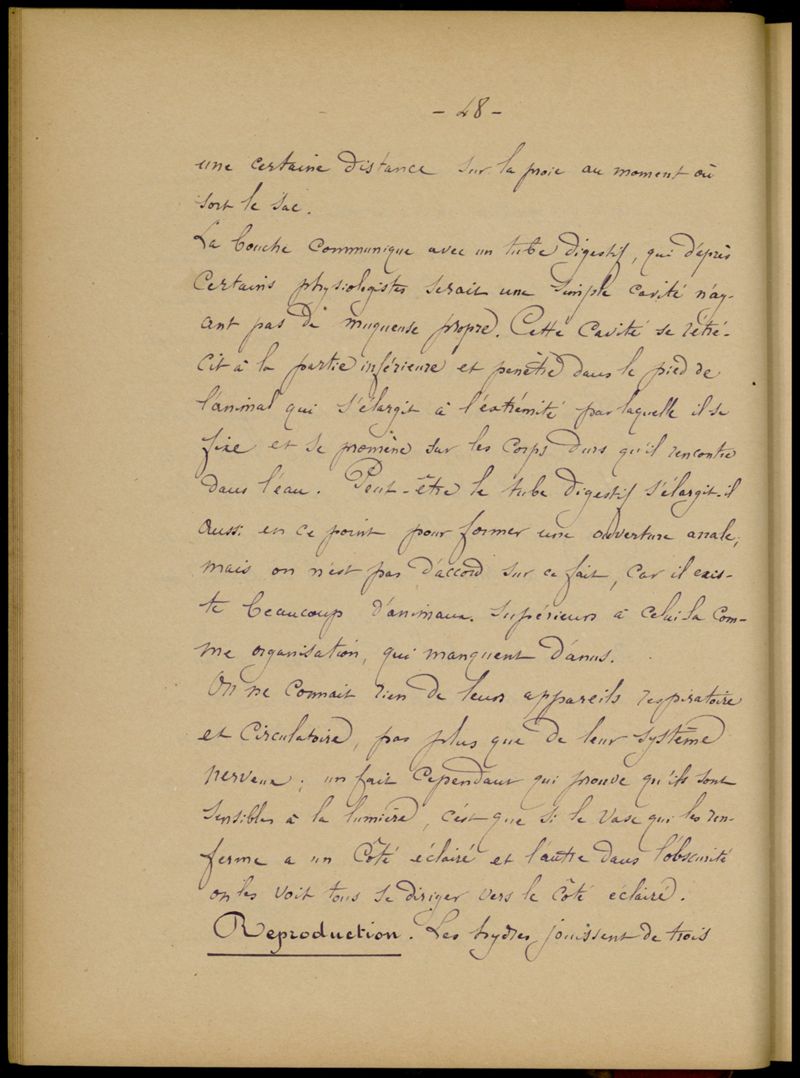 - 48 -
une certaine distance sur la proie au moment où
sort le sac.
La bouche communique avec un tube digestif, qui d'après
certains physiologistes serait une simple cavité n'ay-
ant pas de muqueuse propre. Cette cavité se rétré-
cit à la partie inférieure et pénètre dans le pied de
l'animal qui s'élargit à l'extrémité par laquelle il se
fixe et se promène sur les corps durs qu'il rencontre
dans l'eau. Peut-être le tube digestif s'élargit-il
aussi en ce point pour former une ouverture anale;
mais on n'est pas d'accord sur ce fait, car il exis-
te beaucoup d'animaux supérieurs à celui là com-
me organisation, qui manquent d'anus.
On ne connait rien de leurs appareils respiratoire
et circulatoire, pas plus que de leur système
nerveux; un fait cependant qui prouve qu'ils sont
sensibles à la lumière, c'est que si le vase qui les ren-
ferme a un côté éclairé et l'autre dans l'obscurité
on les voit tous se diriger vers le côté éclairé.
Reproduction. Les hydres jouissent de trois